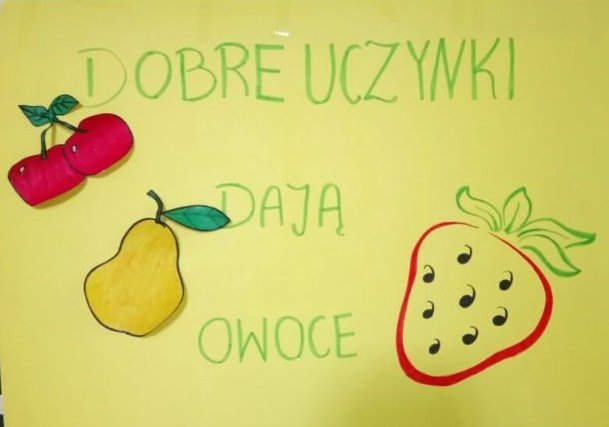 DOBRE UCZYNKI
DAJĄ
OWOCE